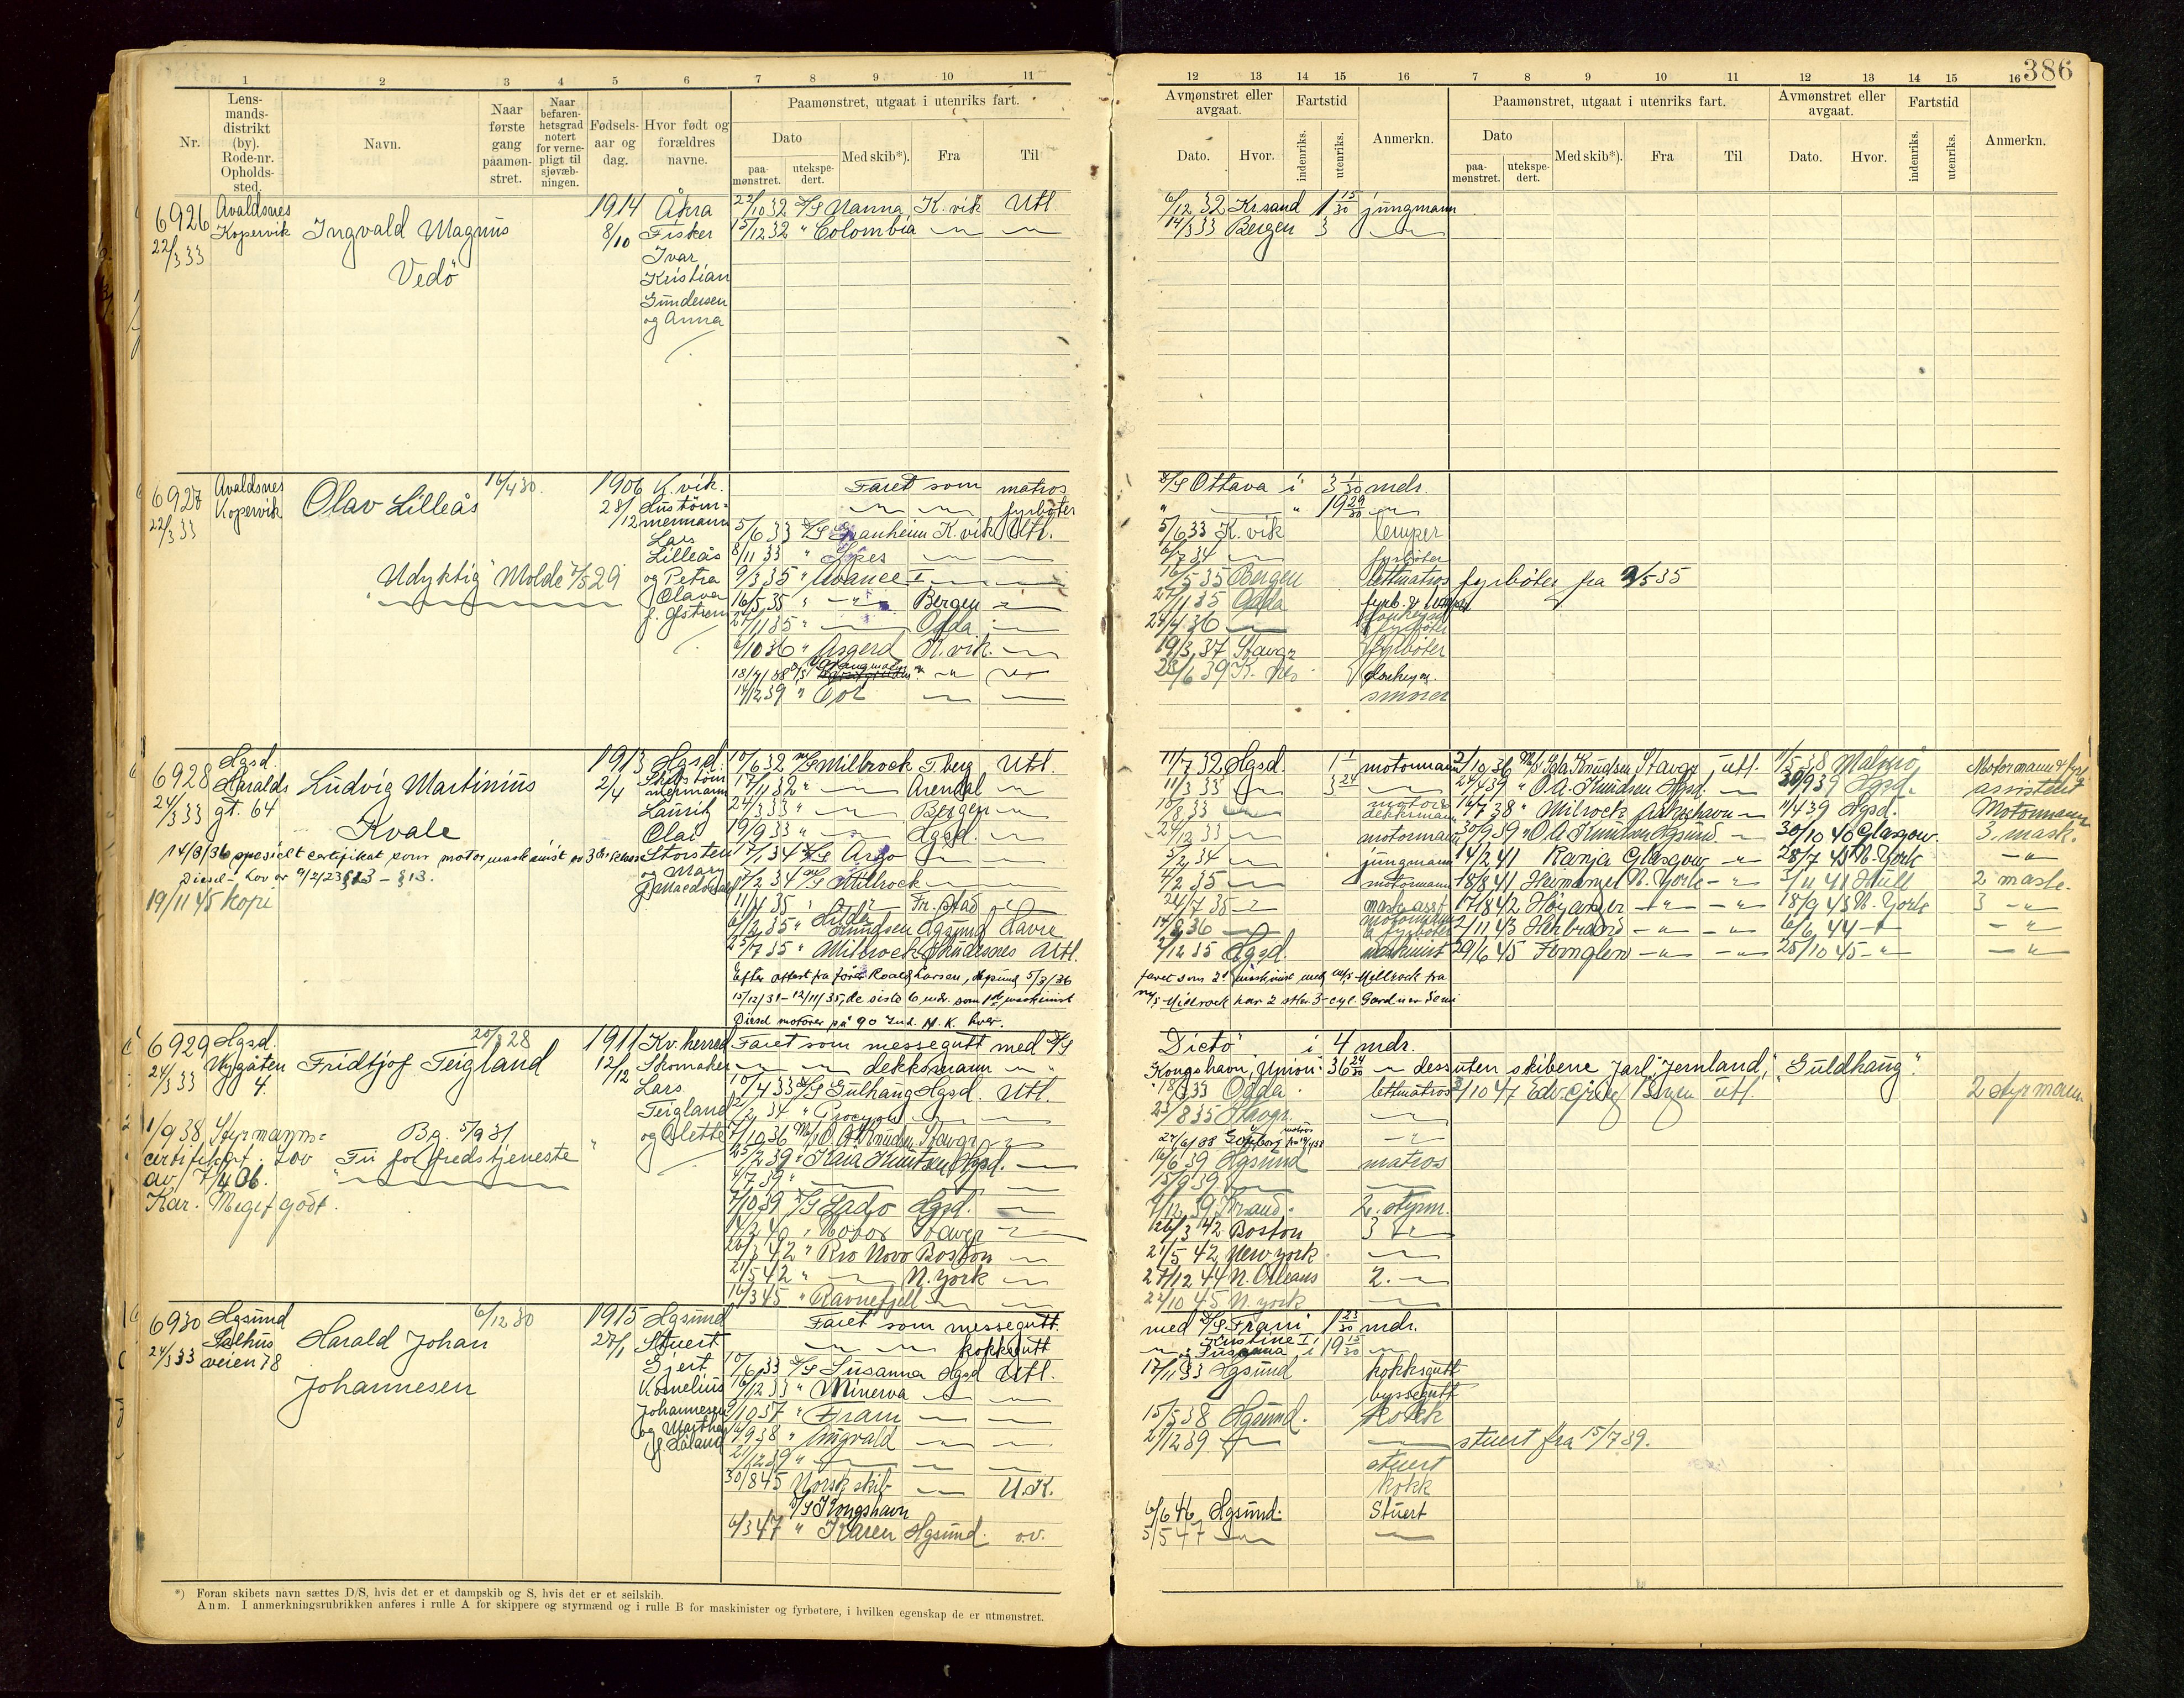 386
1 2 3 4 5 6 7 8 9 10 11
12 13 14 15 16 7 8 9 10 11 12 13 14 15 16
Nr.
Lens-
mands-
distrikt
(by).
Rode-nr.
Opholds-
sted.
Navn.
Naar
første
gang
paamøn-
stret.
Naar
befaren-
hetsgrad
notert
for verne-
pligt til
sjøvæb-
ningen.
Fødsels-
aar og
dag.
Hvor født og
forældres
navne.
Paamønstret, utgaat i utenriks fart.
Dato
paa-
mønstret.
utekspe-
dert.
Med skib*).
Fra
Til
Avmønstret eller
avgaat.
Dato.
Hvor.
Fartstid
indenriks.
utenriks.
Anmerkn.
Paamønstret, utgaat i utenriks fart.
Dato
paa-
mønstret.
utekspe-
dert.
Med skib*).
Fra
Til
Avmønstret eller
avgaat.
Dato.
Hvor.
Fartstid
indenriks.
utenriks.
Anmerkn.
6926
22/3 33
Avaldsnes
Kopervik
Ingvald Magnus
Vedö
1914
8/10
Åkra
Fisker
Ivar
Kristian
Gundersen
og Anna
22/10 32 D/S Nanna K. vik Utl.
15/12 32 " Colombia
6/12 32 Krsand 1 15/30 jungmann
14/3 33 Bergen 3
6927
22/3 33
Avaldsnes
Kopervik
Olav Lilleås
16/4 30.
Udyktig Molde 7/5 29
1906
28/12
K. vik.
Lars
Lilleås
og Petra
Olava
Faret som matros
fyrböter
5/6 33 D/S Granheim K. vik Utl.
8/11 33 "
9/3 35 " Avance I
16/5 35 " Bergen
27/11 35 " Odda
6/10 36 " Asgerd K. vik.
14/12 39 "
D/S Ottava i 3 1/30 mdr.
" " 19 29/30
5/6 33 K. vik lemper
6/7 34 fyrböter
16/5 35 Bergen lettmatros fyrböter fra 9/5 35
27/11 35 Odda fyrb. & lemper
24/4 36 fyrböter
19/3 37 Stavgr fyrböter
23/6 39 donkeym.
smører
6928
24/3 33
Hgsd.
Haralds
gt. 64
Ludvig Martinius
Kvale
14/3/36 spesielt certifikat som motormaskinist av 3dje klasse
Diesel - Lov av 9/2/23 §13.
19/11 45 kopi
1913
2/4
Hgsd.
Lauritz
Olai
Storsten
og Mary
10/6 32 M/S Milrock T. berg Utl.
17/11 32 " Arendal
24/3 33 " Bergen
19/9 33 " Hgsd.
17/1 34 D/S Argo
7/2 34 M/S Milrock
11/4 35 " Fr. stad
6/2 35 " Hilda Knudsen Hgsund Havre
25/7 35 " Milrock Skudesnes Utl.
Efter attest fra fører Roald Larsen, Hgsund 5/3/36
15/12/31 - 12/11/35, de siste 6 mdr. som 1ste maskinist
Diesel motorer på 90 Ind. H.K. hver.
11/7 32 Hgsd. motormann
11/3 33
motormann
5/2 34 jungmann
4/2 35 motormann
24/7 35 mask. asst.
14/8 36 motormann & fyrböter
2/12 35 Hgsd. maskinist
faret som 2. maskinist med M/S Millrock fra
M/S Millrock har 2 stkr. 3-cyl. Gardner Semi
2/10 36 M/S Ida Knudsen Stavgr. utl. 4/5 38 Malmö Motormann & fyrb.
24/4 39 " O. A. Knudsen Hgsd. 30/9 39 Hgsd. assistent
16/7 38 " Milrock 11/4 39 Hgsd. Motormann
30/9 39 " O. A. Knudsen Hgsund 30/10 40 Glasgow. 3. mask.
14/2 41 Ranja Glasgow 28/7 41 N. York
18/8 41 Heimangel N. York 3/11 41 Hull 2 mask.
17/8 42 Høyanger 18/9 43 N. York 3
2/11 43 Herbrand 6/6 44
29/6 45 Fernglen 25/10 45
6929
24/3 33
Hgsd.
Nygåten
4.
Fridtjof Teigland
20/3 28
1/9 38 Styrmanns-
certifikat. Lov
av 7/4 06.
Kar. Meget godt.
Bg. 5/9 31
Fri for fredstjeneste
1911
12/12
Kv. herred
Skomaker
Lars
Teigland
og Alette
Faret som messegutt med D/S
dekksmann
10/4 33 D/S Gulhaug Hgsd. Utl.
2/2 34 " Procyon
7/10 36 M/S O. A. Knudsen Stavgr
25/2 39 " Kaia Knutsen Hgsd.
4/7 39 "
7/10 39 D/S Lado Hgsd.
14/2 40 " Stavgr
26/3 42 " Rio Novo Boston
21/5 42 " N. York
16/3 45 " Ravnefjell
"Dictö" i 4 mdr.
Kongshavn, "Union" 36 24/30 dessuten skibene Jarl, "Jernland," "Guldhaug".
18/8 33 Odda lettmatros
23/8 35 Stavgr.
27/6/38 Goteborg
16/6 39 Hgsund matros
15/9 39
7/12 39 Krsand. 2. styrm.
26/3 42 Boston 3
21/5 42 New York
27/12 44 N. Orleans 2.
22/10 45 N. york
2/10 47 Edv. Grieg Bergen utl. 2 styrmann
6930
24/3 33
Hgsund
Salhus
veien 78
Harald Johan
Johannesen
6/12 30
1915
27/1
Hgsund
Stuert
Gjert
Kornelius
Johannesen
og Marthe
f. Håland
Faret som messegutt
kokksgutt
10/6 33 D/S Susanna Hgsd Utl.
16/12 33 " Minerva
9/10 37 " Fram
16/9 38 " Ingvald
21/12 39 "
30/8 45 Norsk skib U.K.
D/S Kongshavn
6/3 47 " Karen Hgsund. o.v.
med D/S Frani 1 23/30 mdr.
Kristine I
" Susanna i 19 15/30
17/11 33 Hgsund kokksgutt
byssegutt
15/5 38 Hgsund. Kokk
21/12 39 stuert fra 15/7 39.
stuert
kokk
6/6 46 Hgsund. Stuert
5/5 47
*) Foran skibets navn sættes D/S, hvis det er et dampskib og S, hvis det er et seilskib.
Anm. I anmerkningsrubrikken anføres i rulle A for skippere og styrmænd og i rulle B for maskinister og fyrbøtere, i hvilken egenskap de er utmønstret.